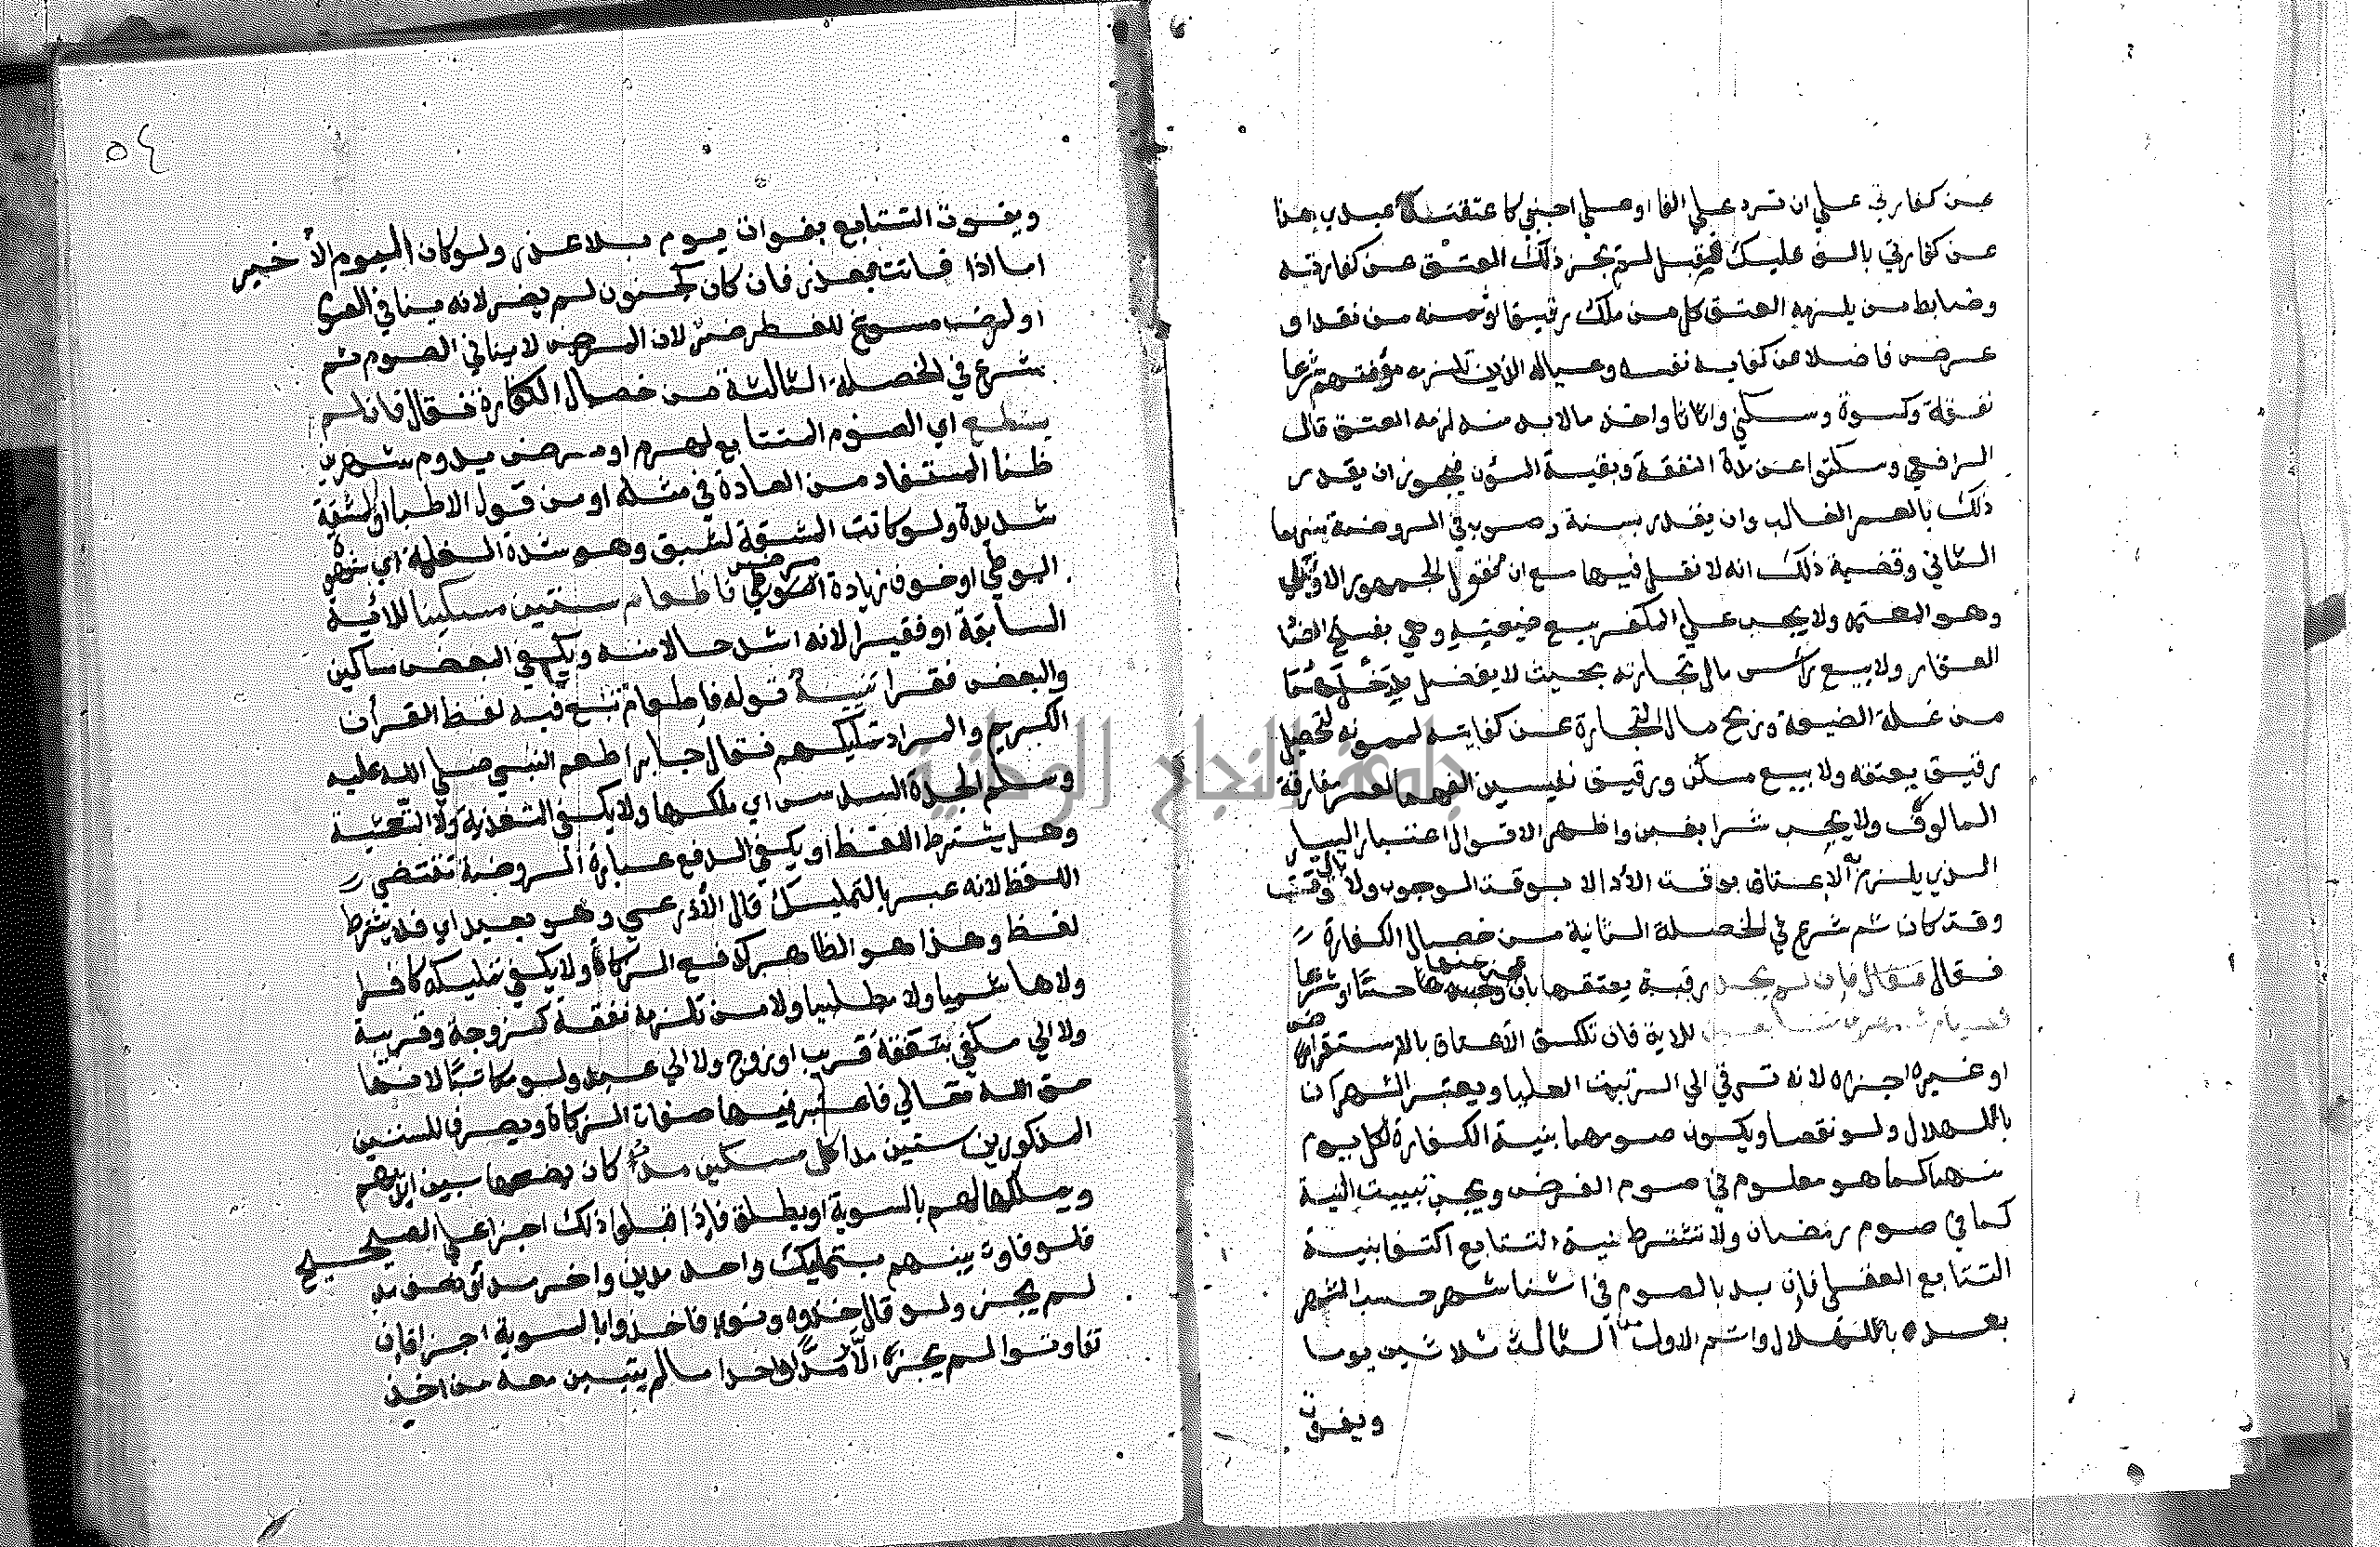 عن كفارتي علي ان ترد علي الفا او علي اجنبي كاعتقت عبدي هذا
عن كفارتي بالف عليك فقبل لم يجز ذلك العتق عن كفارته
وضابط من يلزمه العتق كل من ملك رقيقا او ثمنه من نقد او
عرض فاضلا عن كفاية نفسه وعياله الذين تلزمه مؤنتهم شرعا
نفقة وكسوة وسكني واثاثا واخذ مالابد منه لزمه العتق قال
الرافعي وسكتوا عن مدة النفقة وبقية المؤن فيجوز ان يقدر
ذلك بالعمر الغالب وان يقدر بسنة وصوب في الروضة منهما
الثاني وقضية ذلك انه لا نقل فيها مع ان منقول الجمهور الاول
وهو المعتمد ولا يجب علي المكفر بيع ضيعته وهي بفتح الضا
العقار ولا بيع رأس مال تجارته بحيث لا يفضل دخلهما
من غلة الضيعة وربح مال التجارة عن كفايته لممونه لتحصيل
رقيق يعتقه ولا بيع مسكن ورقيق نفيسين الفهما لعسر مفارقة
المالوف ولا يجب شرا بغبن واظهر الاقوال اعتبار اليسار
الذي يلزم به الاعتاق بوقت الأدا لا بوقت الوجوب ولا باي وقت
وقت كان ثم شرع في الخصلة الثانية من خصال الكفارة
فقال فقال فان لم يجد رقبة يعتقها بان عجز عنها حسا او شرعا
فصيام شهرين متتابعين للاية فان تكلف الاعتاق بالاستقراض
او غيره اجزاه لانه ترقي الي الرتبة العليا ويعتبر الشهران
بالهلال ولو نقصا ويكون صومهما بنية الكفارة لكل يوم
منهما كما هو معلوم في صوم الفرض ويجب تبييت النية
كما في صوم رمضان ولا تشترط نية التتابع اكتفا بنية
التتابع الفعلي فان بدا بالصوم في اثنا شهر حسب الشهر
بعده بالهلال واتم الاول من الثالث ثلاثين يوما
ويفوت
٥٤
ويفوت التتابع بفوات يوم بلا عذر ولو كان اليوم الأخير
اما اذا فاتت بعذر فان كان كجنون لم يضر لانه ينافي الصوم
او لمرض مسوغ للفطر ضر لان المرض لا ينافي الصوم ثم
شرع في الخصلة الثالثة من خصال الكفارة فقال فان لم
يستطع اي الصوم المتتابع لهرم او مرض يدوم شهرين
ظنا المستفاد من العادة في مثله او من قول الاطبا او لمشقة
شديدة ولو كانت المشقة لشبق وهو شدة الغلمة اي شهوة
الوطي او خوف زيادة مرض فاطعام ستين مسكينا للاية
السابقة او فقيرا لانه اشد حالا منه ويكفي البعض مساكين
والبعض فقرا تنبيه قوله فاطعام تبع فيه لفظ القرأن
الكريم والمراد تمليكهم فقال جابر اطعم النبي صلي الله عليه
وسلم الجدة السدس اي ملكها ولا يكفي التغذية ولا التعشية
وهل يشترط اللفظ او يكفي الدفع عبارة الروضة تقتضي
اللفظ لانه عبر بالتمليك قال الأذرعي وهو بعيد اي فلا يشترط
لفظ وهذا هو الظاهر كدفع الزكاة ولا يكفي تمليكه كافرا
ولا هاشميا ولا مطلبيا ولا من تلزمه نفقة كزوجة وقريبة
ولا الي مكفي بنفقة قريب او زوج ولا الي عبد ولو مكاتبا لانها
حق الله تعالي فاعتبر فيها صفات الزكاة ويصرف للستين
المذكورين ستين مدا لكل مسكين مد كان يضعها بين ايديهم
ويملكها لهم بالسوية او يطلق فاذا قبلوا ذلك اجزا علي الصحيح
فلو فاوت بينهم بتمليك واحد مدين واخر مد او نصف مد
لم يجز ولو قال خذوه ونوي فاخذوا بالسوية اجزا فان
تفاوتوا لم يجزه الا مد واحد ما لم يتبين معه من اخذ
جامعة النجاح الوطنية